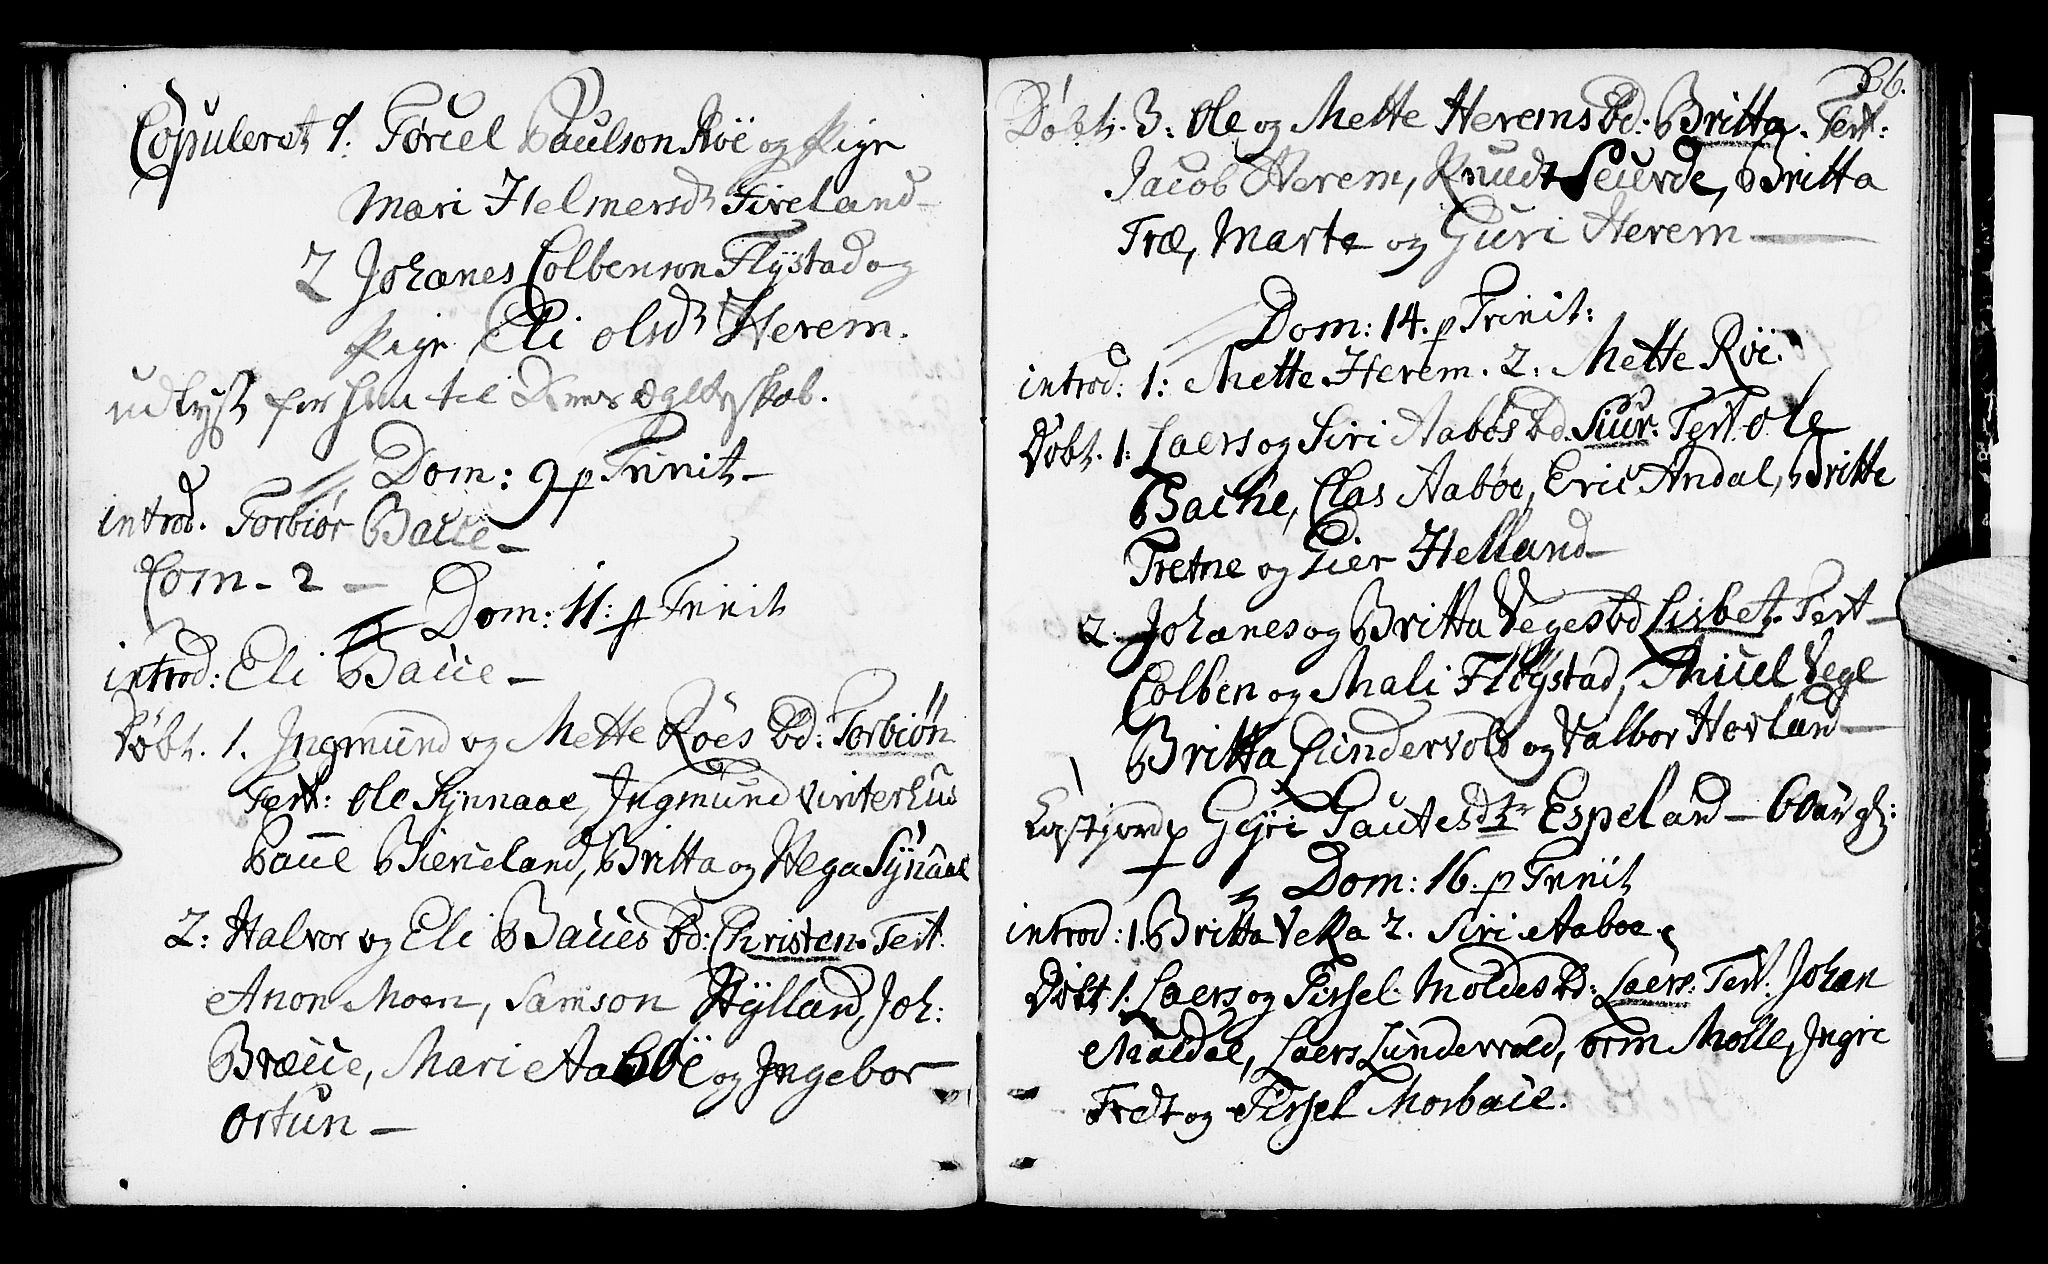 Copuleret 1. Torcel Paulson Röe og Pige
Mari Helmersdr Fireland
2 Johanes Colbenson Flÿstad og
Pige Eli olsdr Herem.
udlyst for til ægteskab.
Dom: 9 p Trinit
introd. Torbiör Baue
Com - 2 -
Dom: 11: p Trinit
introd: Eli Baue
Döbt. 1. Ingmund og Mette Röes bd: Torbiön
Test: Ole Synnaae, Ingmund Vinterhus
Paue Bierieland, Britta og Hega Synaae
2: Halvor og Eli Baues bd: Christen. Test.
Anon Moen, Samson Hÿlland, Joh:
Bræue, Mari Aaböe og Ingebor
Ostun
86.
Döbt. 3. Ole og Mette Herems bd: Britta. Test:
Jacob Herem, Knudt Seurde, Britta
Træ, Marte og Guri Herem
Dom: 14. p Trinit:
introd: 1: Mette Herem. 2. Mette Röe.
Döbt. 1: Laers og Siri Aaböes bd. Siur. Test. Ole
Bache, Clas Aaböe, Eric Andal, Britte
Tretne og Gier Helland
2. Johanes og Britta Veges bd Lisbet. Test
Colben og Mali Flöystad, Amuel Vege
Britta Lundervold og Valbor Hovland
Gÿri Gautesdtr Espeland - 60 aar gl:
Dom: 16. p Trinit
introd: 1. Britta Veka 2. Siri Aaboe
Döbt 1. Laers og Sissel Moldes bd: Laers. Test. Johan
Maldal, Laers Lundervold, orm Molle, Ingri
Tredt og Sissel Morbaue.